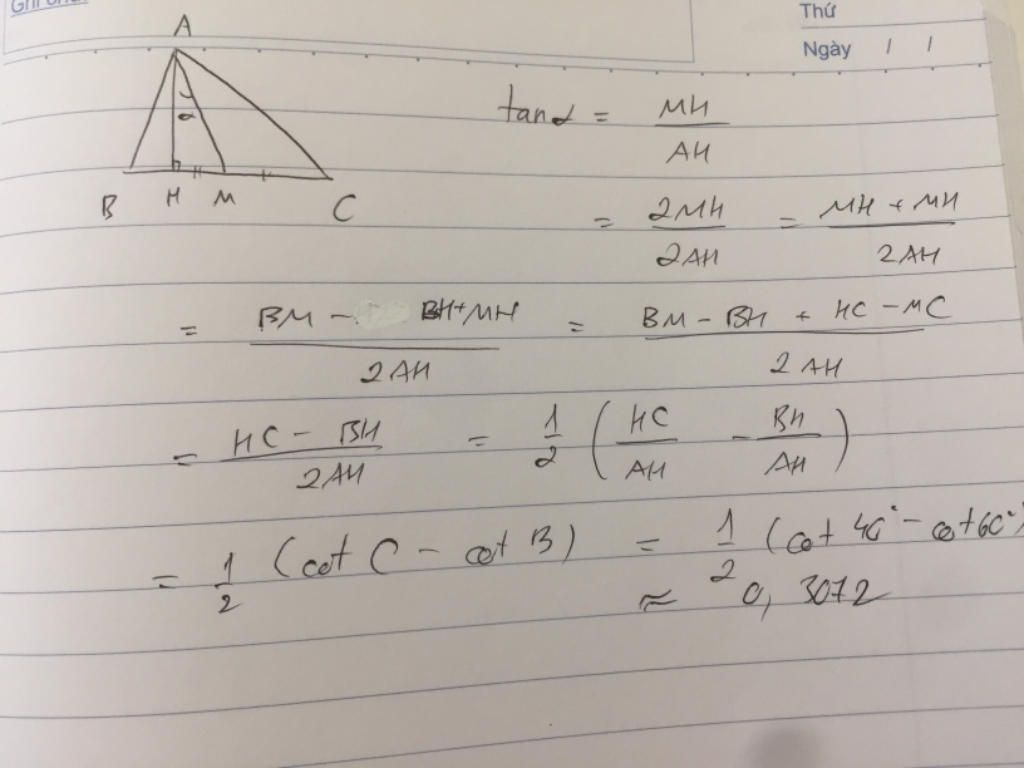 Thứ
Ngày / /
A
α
B H M C
tanα = MH/AH
= 2MH/2AH = (MH + MH)/2AH
= (BM - BH + MH)/2AH = (BM - BH + HC - MC)/2AH
= (HC - BH)/2AH = 1/2 (HC/AH - BH/AH)
= 1/2 (cot C - cot B) = 1/2 (cot 40° - cot 60°)
≈ 0,3072